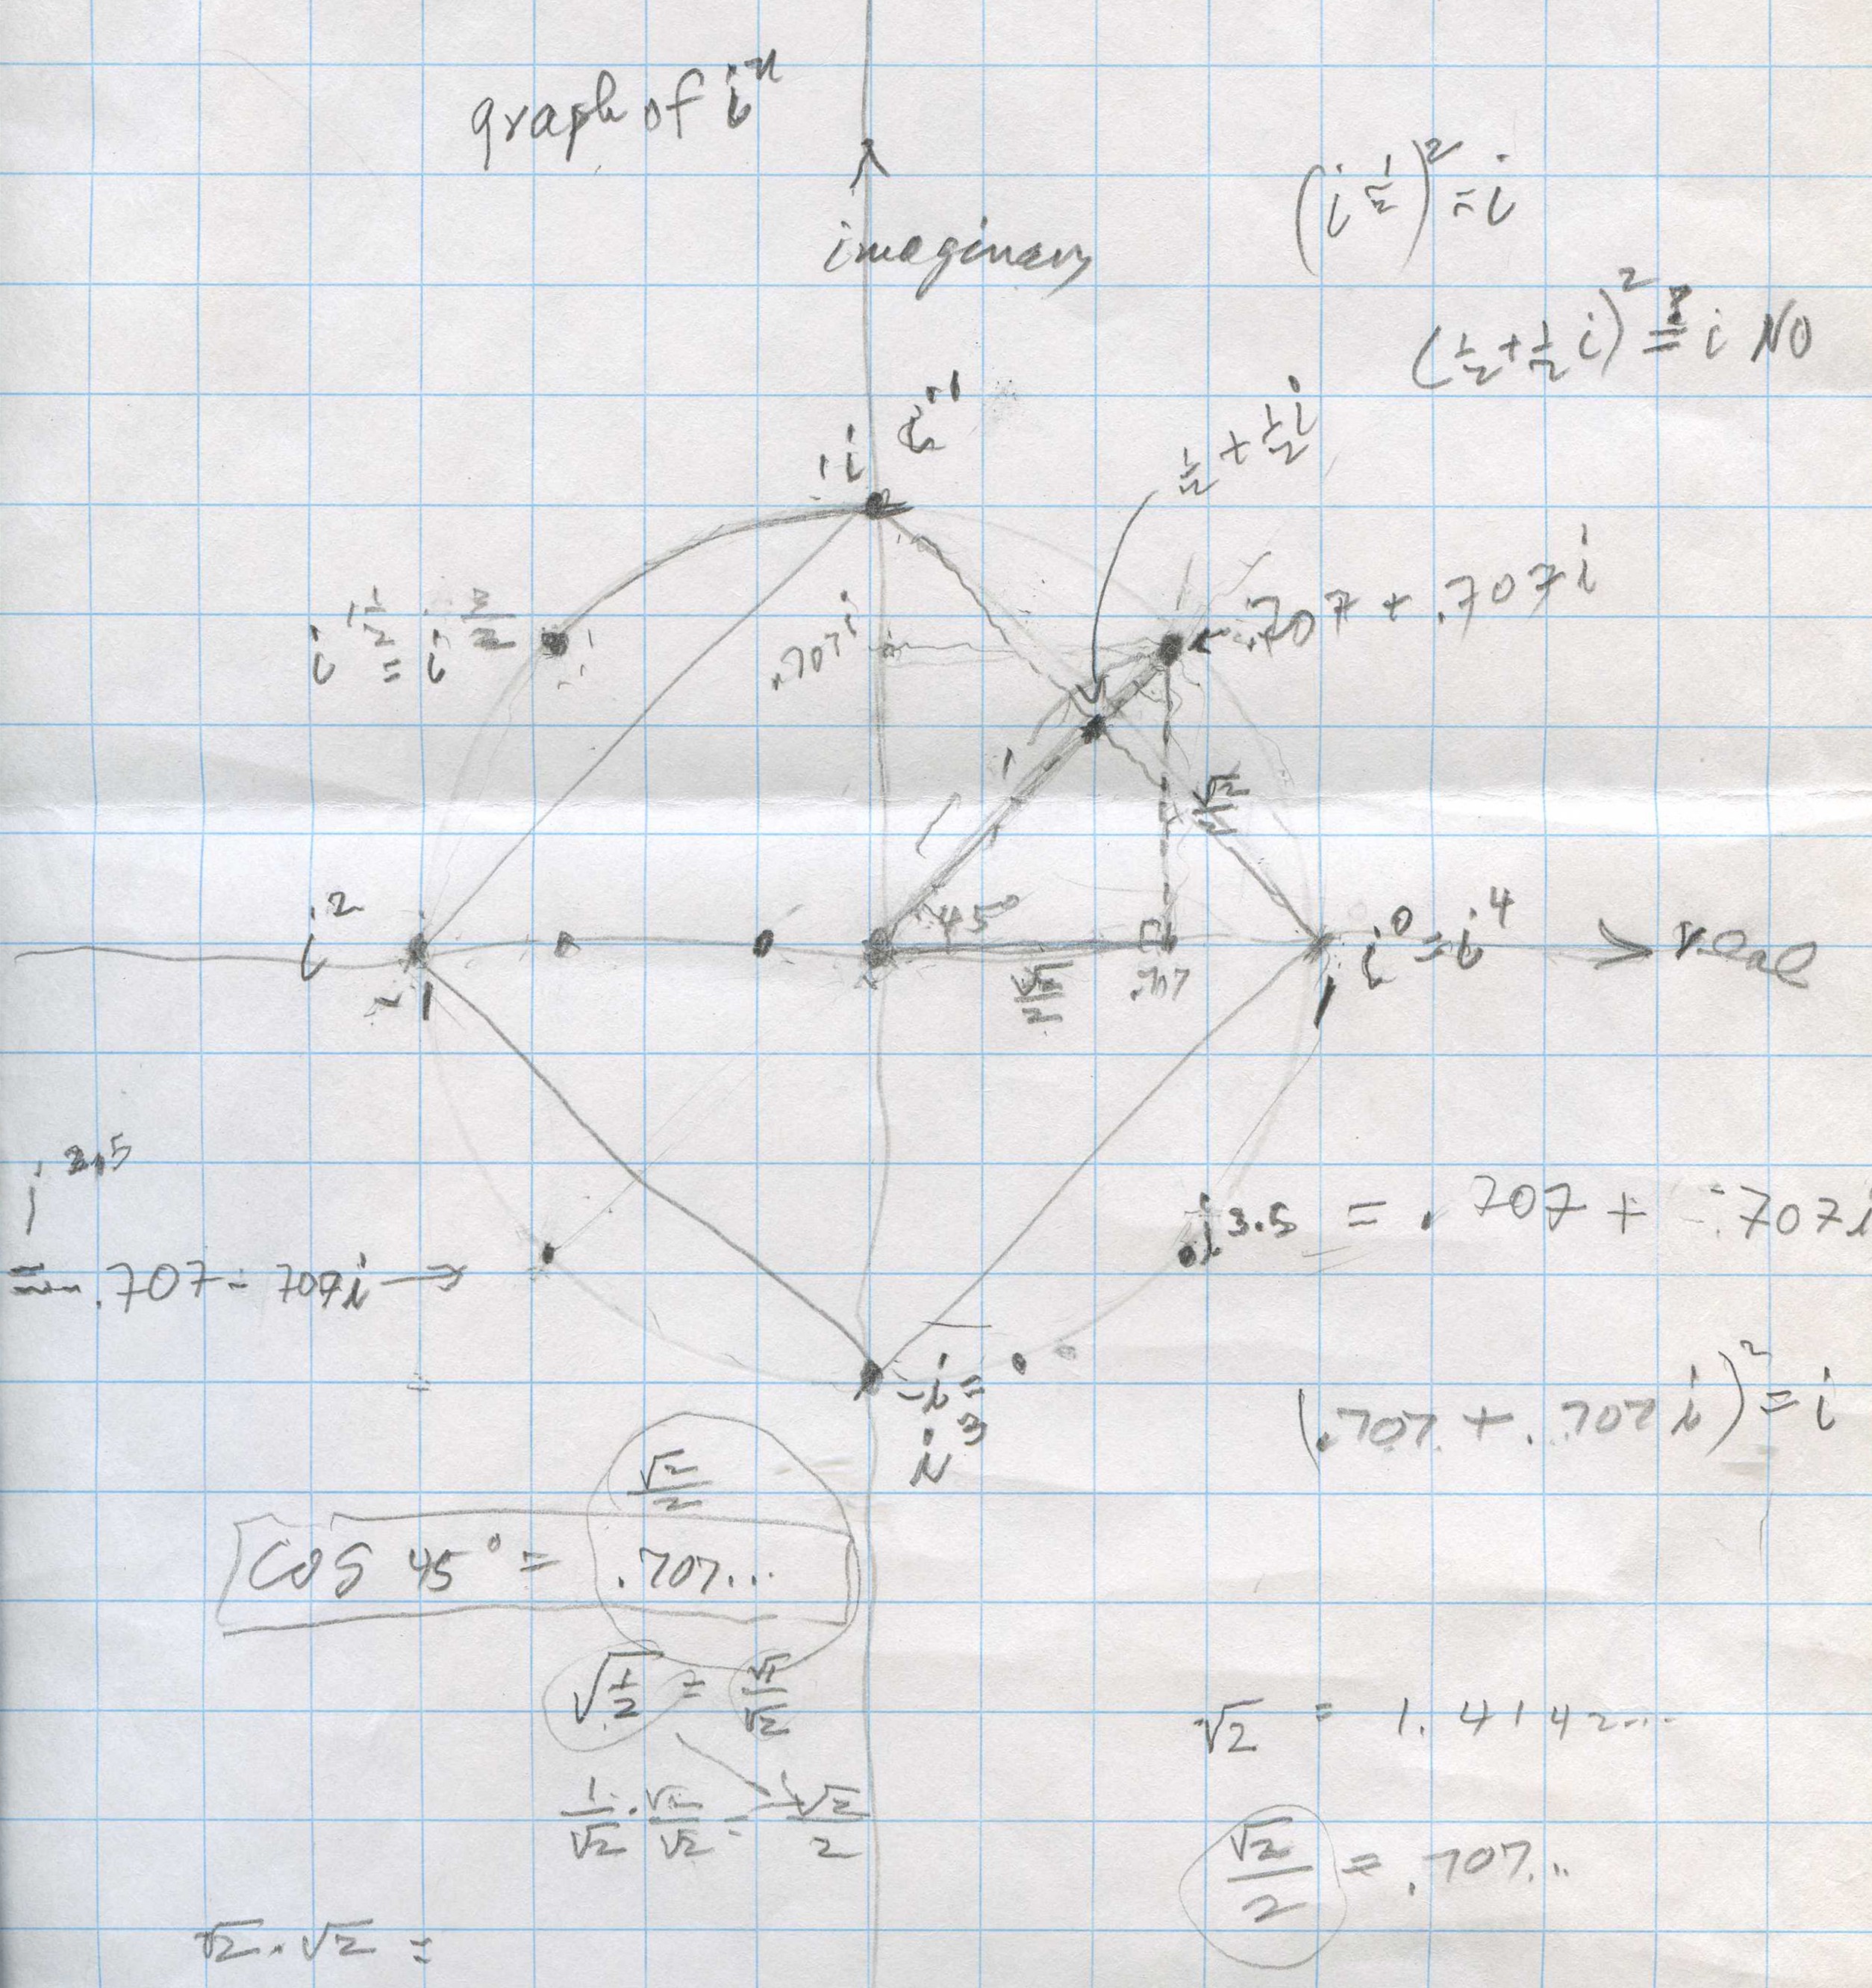 graph of iⁿ
imaginary
(i^½)² = i
(½ + ½ i)² ≟ i NO
i i¹
½ + ½ i
i^1½ = i^3/2
.707i
.707 + .707 i
1
√2/2
i²
-1
45°
√2/2
.707
i⁰ = i⁴
1
real
i^2.5
= -.707 - .707i →
i^3.5 = .707 + -.707i
-i =
i³
(.707 + .707 i)² = i
√2/2
cos 45° = .707...
√½ = √1/√2
1/√2 · √2/√2 = √2/2
√2 = 1.4142...
√2/2 = .707...
√2 · √2 =